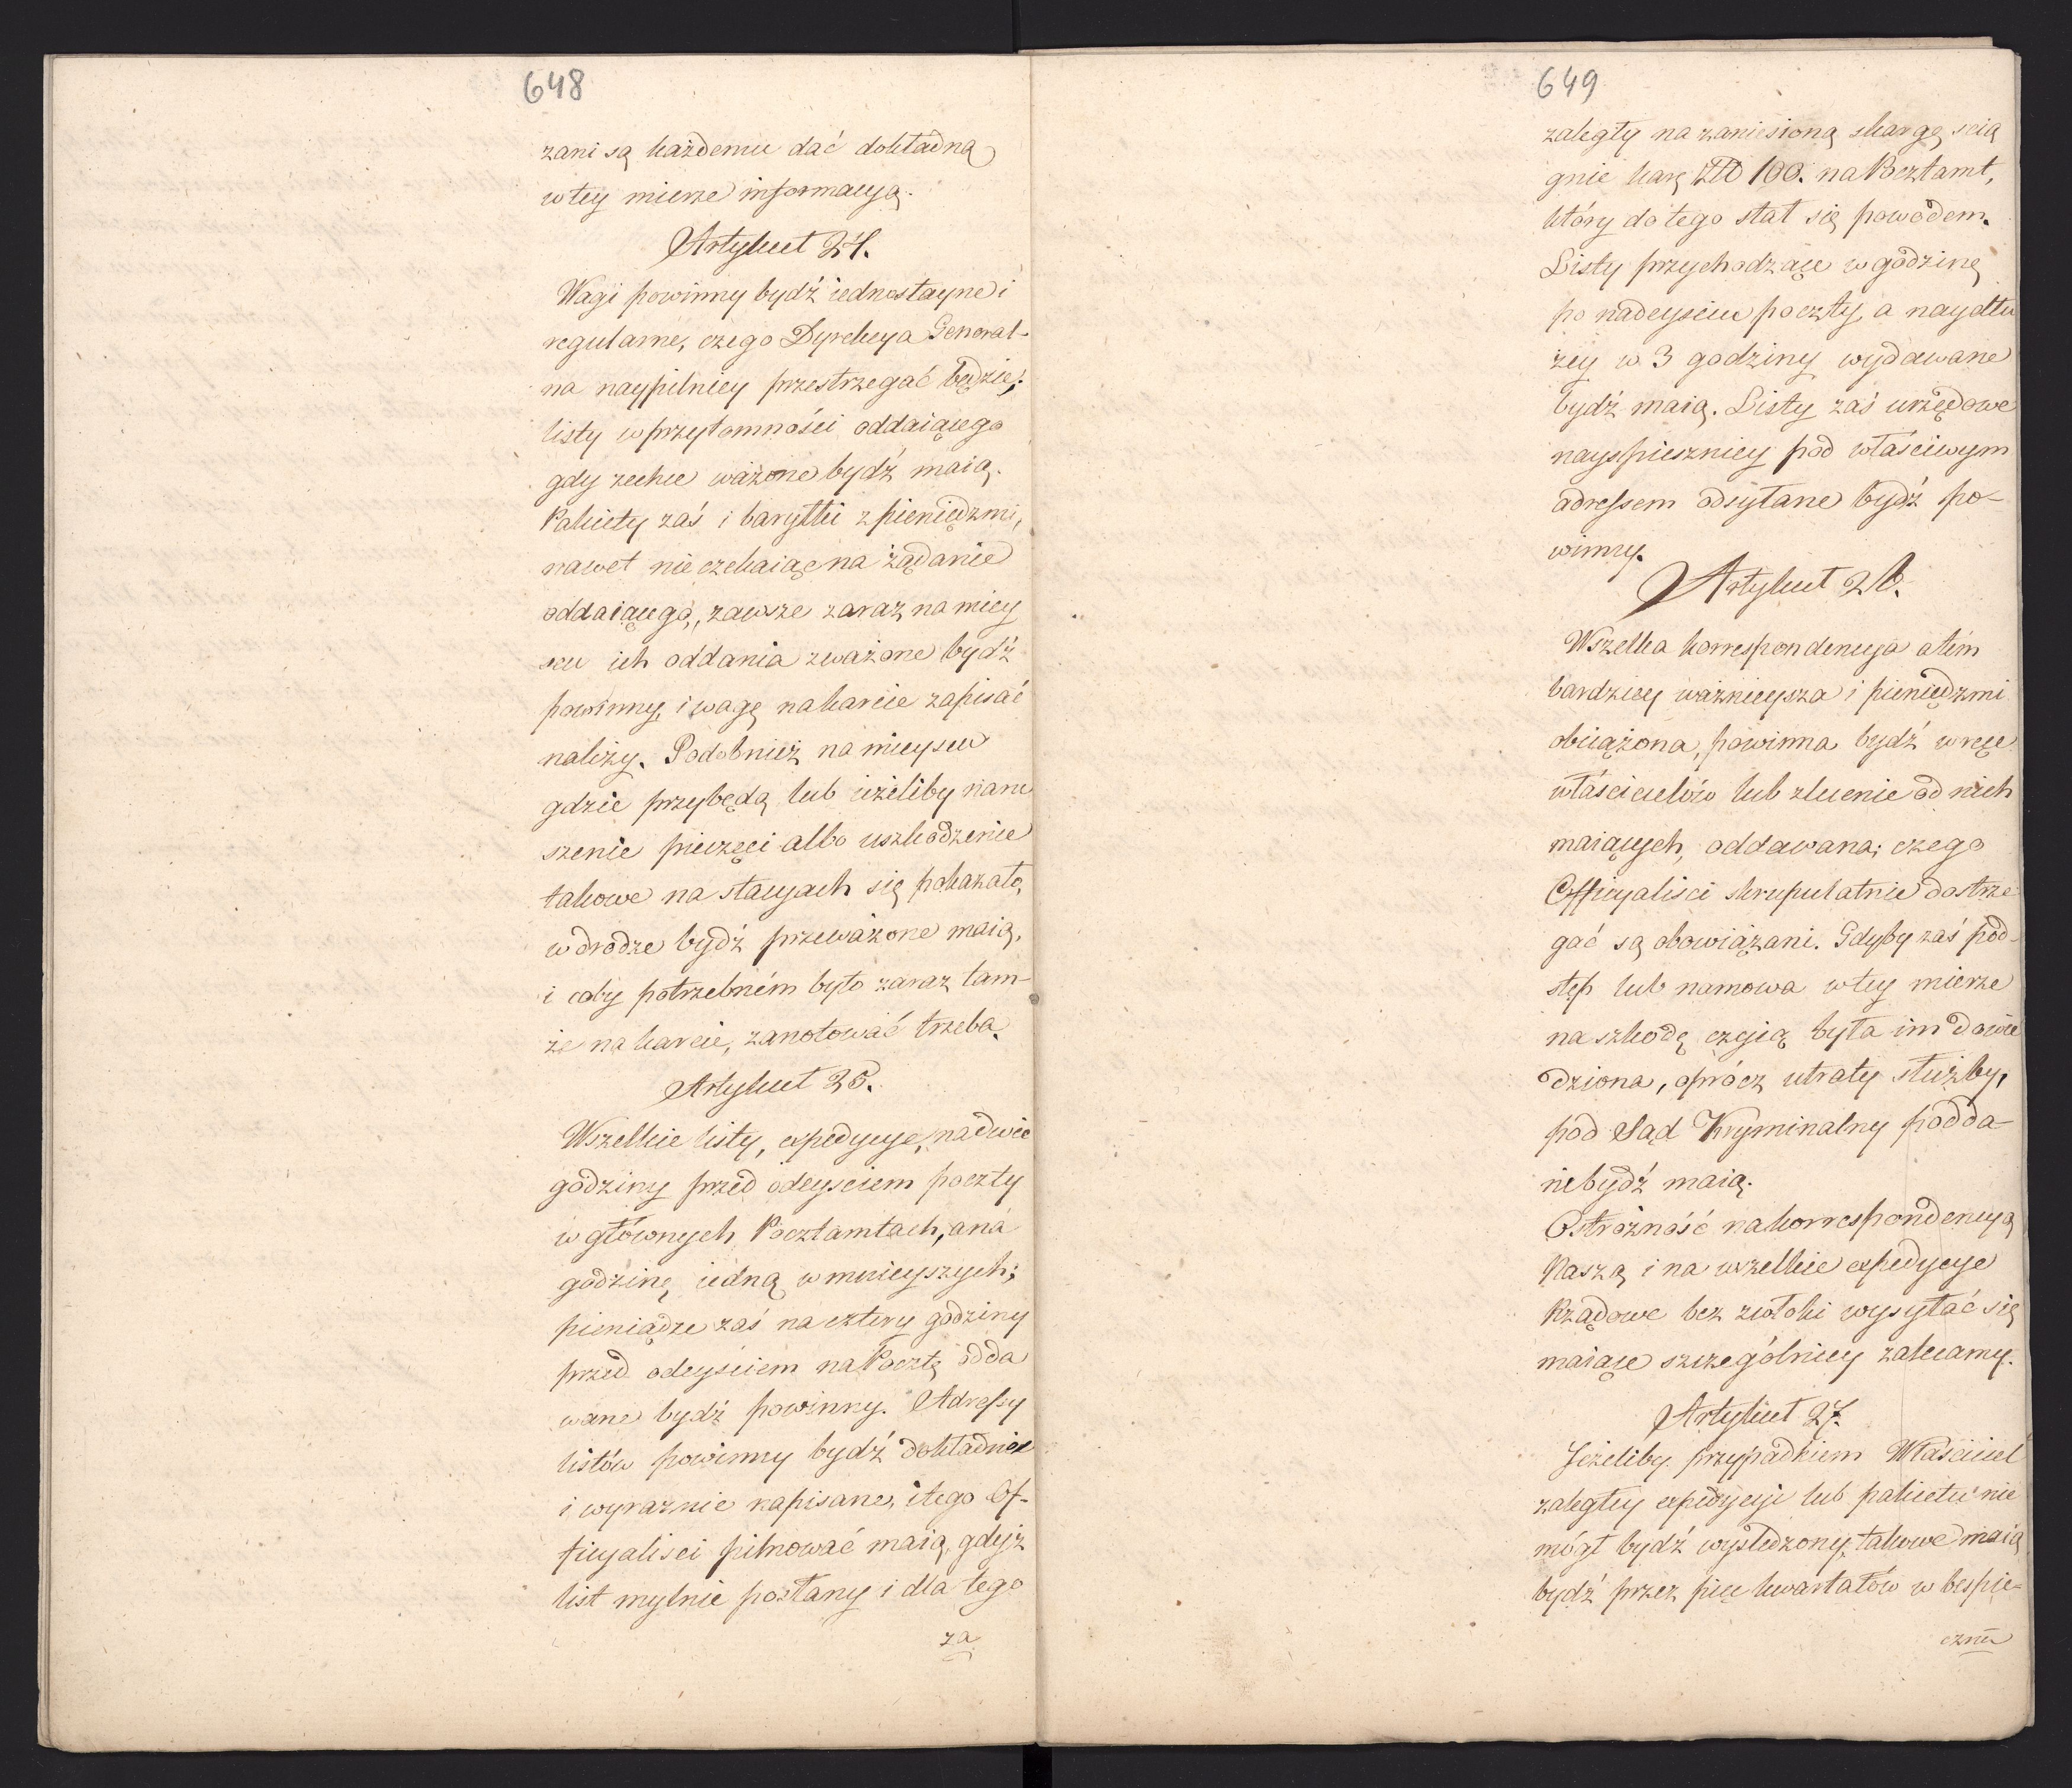 648
zani są każdemu dać dokładną
w tey mierze informacyą.
Artykuł 24.
Wagi powinny bydź iednostayne i
regularne, czego Dyrekcya General-
na naypilniey przestrzegać będzie;
listy w przytomności oddaiącego
gdy zechce ważone bydź maią.
Pakiety zaś i baryłki z pieniędzmi,
nawet nie czekaiąc na żądanie
oddaiącego, zawsze zaraz na miey
scu ich oddania zważone bydź
powinny, i wagę na karcie zapisać
należy. Podobnież na mieyscu
gdzie przybędą lub ieżeliby naru
szenie pieczęci albo uszkodzenie
takowe na stacyach się pokazało,
w drodze bydź przeważone maią,
i coby potrzebném było zaraz tam-
że na karcie, zanotować trzeba.
Artykuł 25.
Wszelkie listy, expedycye, na dwie
godziny przed odeysciem poczty
w głównych Pocztamtach, a na
godzinę iedną w mnieyszych;
pieniądze zaś na cztery godziny
przed odeyściem na Pocztę odda
wane bydź powinny. Adressy
listów powinny bydź dokładnie
i wyraznie napisane, i tego Of-
ficyalisci pilnować maią, gdyż
list mylnie posłany i dla tego
za
649
zaległy na zaniesioną skargę scią
gnie karę Złł 100. na Pocztamt,
który do tego stał się powodem.
Listy przychodzące w godzinę
po nadeysciu poczty, a naydłu
żey w 3 godziny wydawane
bydź maią. Listy zaś urzędowe
nayspieszniey pod właściwym
adressem odsyłane bydź po-
winny.
Artykuł 26.
Wszelka korrespondencya a tém
bardziey ważnieysza i pieniędzmi
obciążona, powinna bydź w ręce
właścicielów lub zlecenie od nich
maiących, oddawana; czego
Officyaliści skrupulatnie dostrze
gać są obowiązani. Gdyby zaś pod-
stęp lub namowa w tey mierze
na szkodę czyią była im dowie
dziona, oprócz utraty służby,
pod Sąd Kryminalny podda-
ni bydź maią.
Ostrożność na korrespondencyą
Naszą i na wszelkie expedycye
Rządowe bez zwłoki wysyłać się
maiące szczególniey zalecamy.
Artykuł 27.
Jeżeliby przypadkiem Właściciel
zaległey expedycyi lub pakietu nie
mógł bydź wyśledzony, takowe maią
bydź przez pięć kwartałów w bespie-
cznem